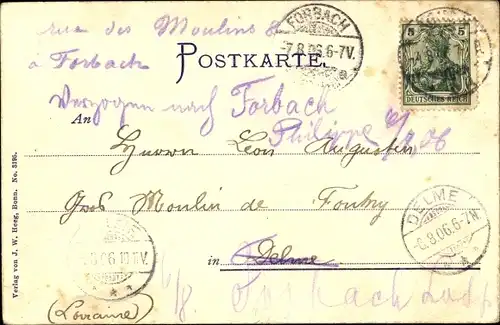 rue des Moulins 8
à Forbach
POSTKARTE.
FORBACH
7.8.06.6-7V.
5 5
DEUTSCHES REICH
Verzogen nach Forbach
Philippe 6/8 06
An
Léon Augustin
Moulin de
in Delme
DELME
8.8.06.6-7N.
06 10-11V.
(Lorraine)
6/8 Forbach
Verlag von J. W. Heeg, Bonn. No. 5195.